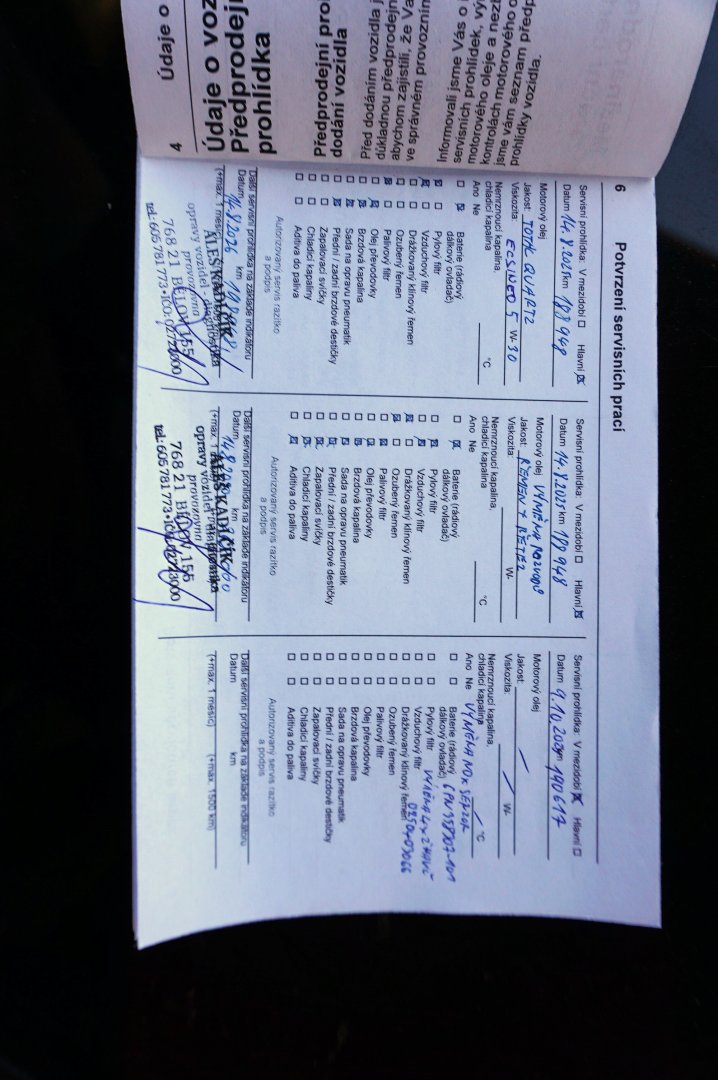 4
Údaje o
Údaje o voz
Předprodej
prohlídka
Předprodejní pro
dodání vozidla
Před dodáním vozidla j
důkladnou předprodejn
abychom zajistili, že Va
ve správném provozním
Informovali jsme Vás o
servisních prohlídek, vý
motorového oleje a nezb
Kontrolách motorového o
jsme vám seznam předp
prohlídky vozidla.
6
Potvrzení servisních prací
Servisní prohlídka: V mezidobí Hlavní
Datum 14.8.2025 km 188948
Motorový olej
Jakost: TOTAL QUARTZ
Viskozita: ECSINEO 5 W- 30
Nemrznoucí kapalina,
chladicí kapalina °C
Ano Ne
Baterie (rádiový
dálkový ovladač)
Pylový filtr
Vzduchový filtr
Drážkovaný klínový řemen
Ozubený řemen
Palivový filtr
Olej převodovky
Brzdová kapalina
Sada na opravu pneumatik
Přední / zadní brzdové destičky
Zapalovací svíčky
Chladicí kapaliny
Aditiva do paliva
Autorizovaný servis razítko
a podpis
Další servisní prohlídka na základě indikátoru
Datum 14.8.2026 km
(+max. 1 měsíc)
ALEŠ KADLČÍK
opravy vozidel, diagnostika
provozovna
768 21 BĚLOV 155
tel.: 605 781 773
Servisní prohlídka: V mezidobí Hlavní
Datum 14.8.2025 km 188948
Motorový olej VÝMĚNA ROZVODŮ
Jakost: ŘEMEN + ŘETĚZ
Viskozita: W-
Nemrznoucí kapalina,
chladicí kapalina °C
Ano Ne
Baterie (rádiový
dálkový ovladač)
Pylový filtr
Vzduchový filtr
Drážkovaný klínový řemen
Ozubený řemen
Palivový filtr
Olej převodovky
Brzdová kapalina
Sada na opravu pneumatik
Přední / zadní brzdové destičky
Zapalovací svíčky
Chladicí kapaliny
Aditiva do paliva
Autorizovaný servis razítko
a podpis
Další servisní prohlídka na základě indikátoru
Datum km
(+max. 1
ALEŠ KADLČÍK
opravy vozidel, diagnostika
provozovna
768 21 BĚLOV 155
tel.: 605 781 773
Servisní prohlídka: V mezidobí Hlavní
Datum 9.10.2025 km 190617
Motorový olej
Jakost:
Viskozita: W-
Nemrznoucí kapalina,
chladicí kapalina °C
Ano Ne VÝMĚNA NOX SENZOR
Baterie (rádiový
dálkový ovladač)
Pylový filtr VÝMĚNA 4x ŽHAVIČ
Vzduchový filtr
Drážkovaný klínový řemen 0250403066
Ozubený řemen
Palivový filtr
Olej převodovky
Brzdová kapalina
Sada na opravu pneumatik
Přední / zadní brzdové destičky
Zapalovací svíčky
Chladicí kapaliny
Aditiva do paliva
Autorizovaný servis razítko
a podpis
Další servisní prohlídka na základě indikátoru
Datum km
(+max. 1 měsíc) (+max. 1500 km)